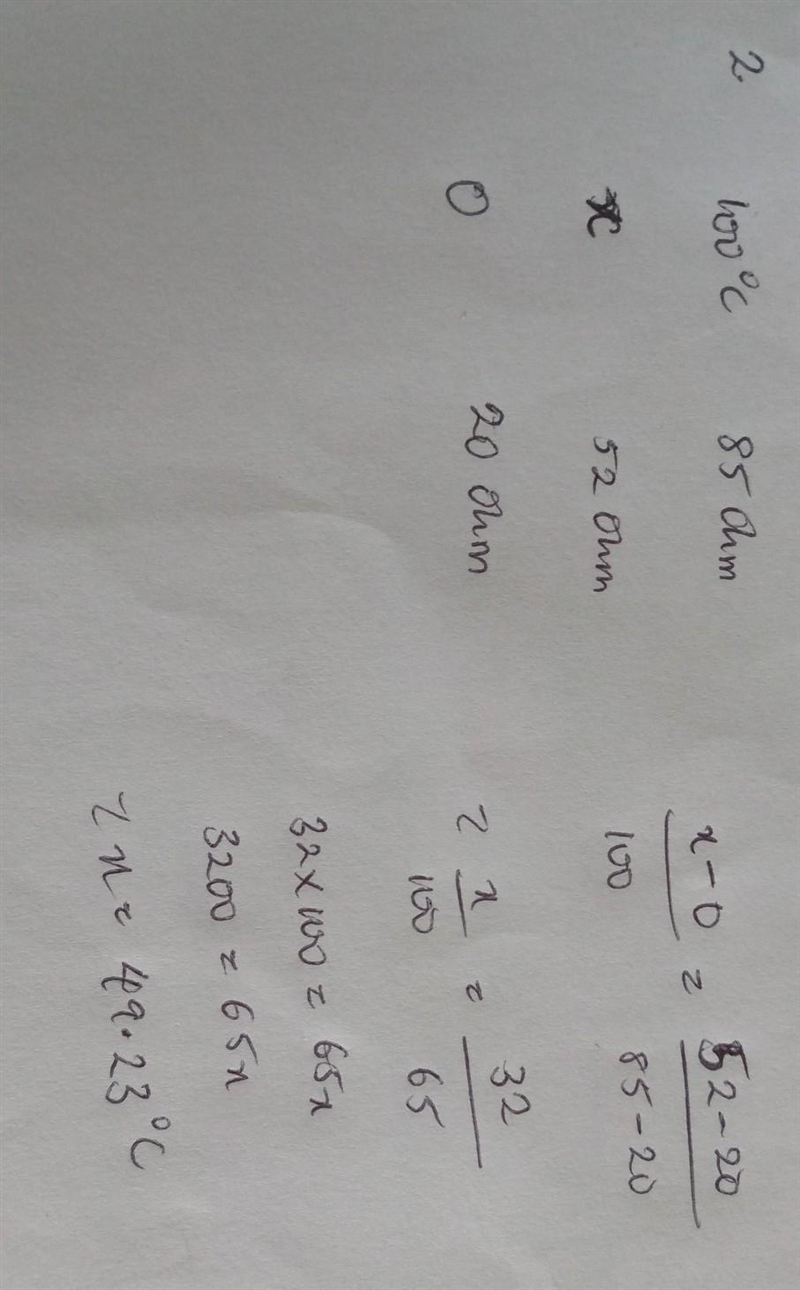 2 100°C 85 Ohm
x 52 Ohm
0 20 Ohm
x-0/100 = 52-20/85-20
= x/100 = 32/65
32×100 = 65x
3200 = 65x
= x = 49.23°C